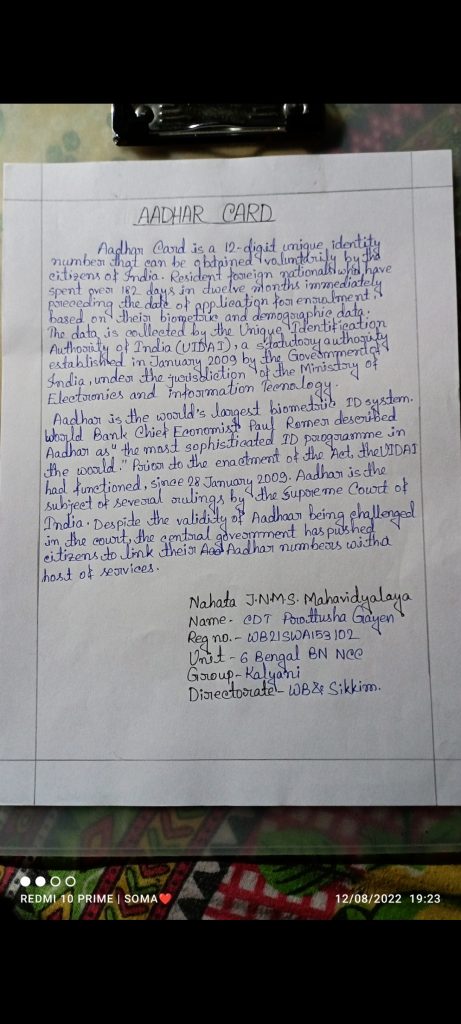 AADHAR CARD
Aadhar Card is a 12-digit unique, identity
number that can be obtained voluntarily by the
citizens of India. Resident foreign nationals who have
spent over 182 days in twelve months immediately
preceding the date of application for enrolment;
based on their biometric and demographic data.
The data is collected by the Unique Identification
Authority of India (UIDAI), a statutory authority
established in January 2009 by the Government of
India, under the jurisdiction of the Ministry of
Electronics and information Tecnology.
Aadhar is the world's largest biometric ID system.
World Bank Chief Economist Paul Romer described
Aadhar as "the most sophisticated ID programme in
the world." Prior to the enactment of the Act, the UIDAI
had functioned, since 28 January 2009. Aadhar is the
subject of several rulings by the Supreme Court of
India. Despite the validity of Aadhaar being challenged
in the court, the central government has pushed
citizens to link their Aadhar numbers with a
host of services.
Nahata J.N.M.S. Mahavidyalaya
Name - CDT Gayen
Reg no. - WB21SWA153102
Unit - 6 Bengal BN NCC
Group - Kalyani
Directorate - WB & Sikkim.
REDMI 10 PRIME | SOMA❤
12/08/2022 19:23